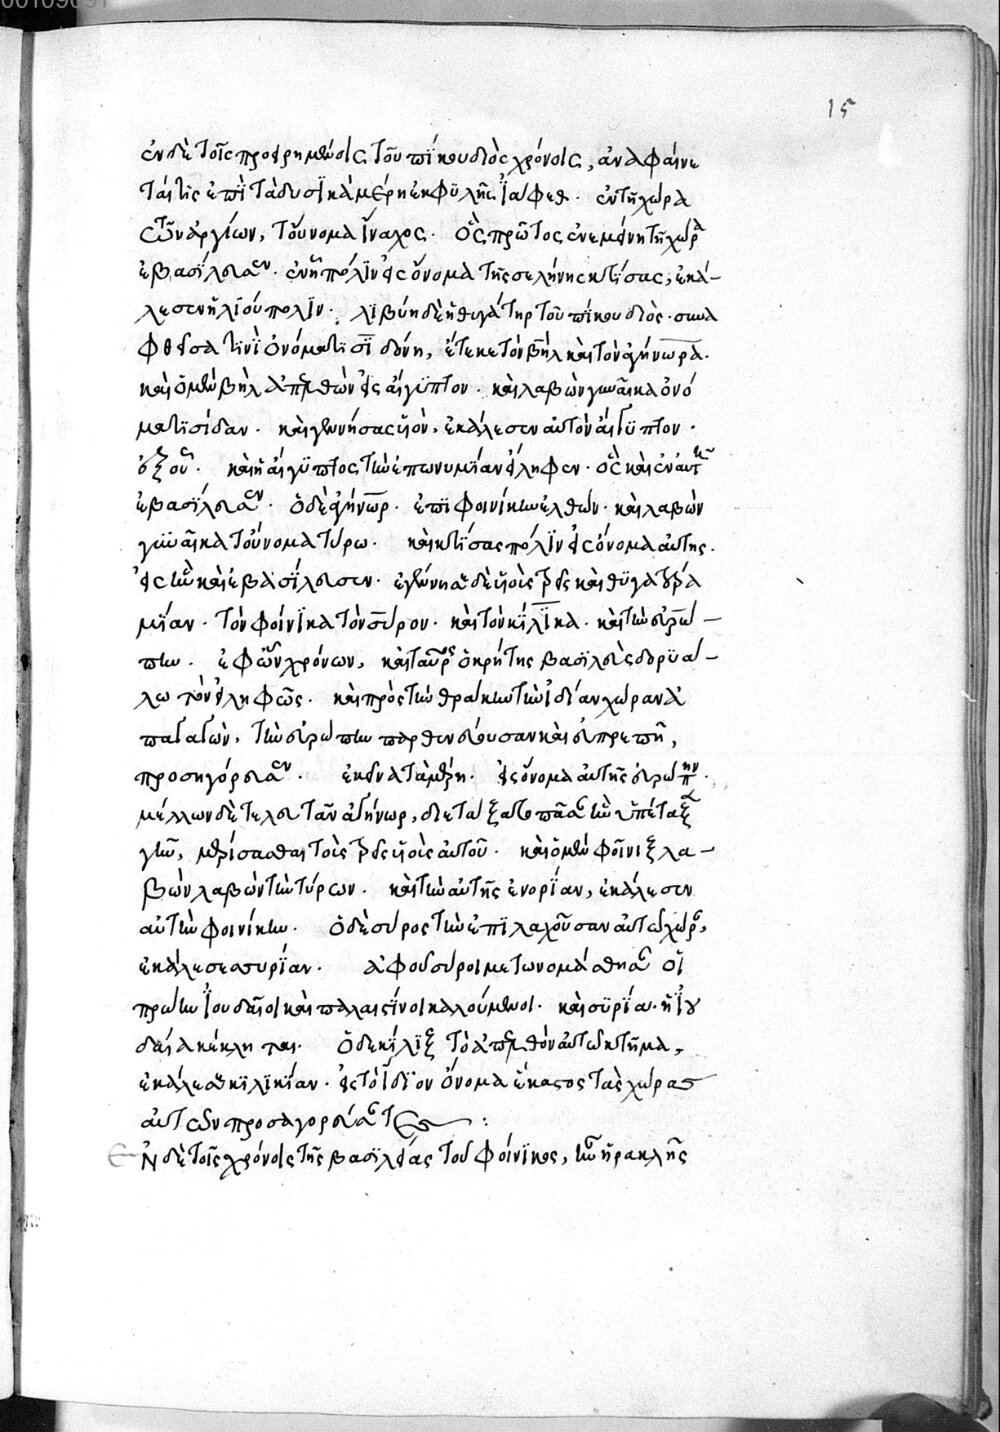 15
ἐν δὲ τοῖς προειρημένοις τοῦ πίκου διὸς χρόνοις, ἀναφαίνε
ταί τις ἐπὶ τὰ δυσϊκὰ μέρη ἐκ φυλῆς ἰάφεθ. ἐν τῆ χώρα
τῶν ἀργίων, τοὔνομα ἴναχος. ὃς πρῶτος ἐν ἐκείνη τῆ χώρα
ἐβασίλευσεν. ἐν ἧ πόλϊν εἰς ὄνομα τῆς σελήνης κτίσας, ἐκά-
λεσεν ἡλίου πόλϊν. λϊβύη δὲ ἡ θυγάτηρ τοῦ πίκου διὸς. συνα
φθεῖσα τινὶ ὀνόματι
ποσϊδόνη, ἔτεκε τὸν βὴλ καὶ τὸν ἀγήνωρα.
καὶ ὁ μὲν βὴλ ἀπελθὼν εἰς αἴγϋπτον. καὶ λαβὼν γυναῖκα ὀνό
ματϊ σίδαν. καὶ γεννήσας υἱὸν, ἐκάλεσεν αὐτὸν αἴγϋπτον.
ἐξ οὗ. καὶ ἡ αἴγϋπτος τὴν ἐπωνυμίαν εἴληφεν. ὃς καὶ ἐν αὐτῆ
ἐβασίλευσεν. ὁ δὲ ἀγήνωρ. ἐπὶ φοινίκην ἐλθών. καὶ λαβὼν
γυναῖκα τοὔνομα τύρω. καὶ κτίσας πόλϊν εἰς ὄνομα αὐτῆς.
εἰς ἣν καὶ ἐβασίλευσεν. ἐγέννησε δὲ υἱοὺς τρεῖς καὶ θϋγατέρα
μίαν. τὸν φοίνικα τὸν σύρον. καὶ τὸν κίλϊκα. καὶ τὴν εὐρώ-
πην. ἐφ ὧν χρόνων, καὶ ταῦρος ὁ κρήτης βασιλεὺς δορϋά-
λωτον εἰληφῶς. καὶ πρὸς τὴν θρακην τὴν ἰδίαν χώραν ἀ
παγαγὼν, τὴν εὐρώπην παρθενεύουσαν καὶ εὐπρεπῆ,
προσηγόρευσεν. ἐκεῖνα τὰ μέρη. εἰς ὄνομα αὐτῆς εὐρώπην.
μέλλων δὲ τελευτᾶν ἀγήνωρ, διετάξατο πᾶσαν ἣν ὑπέταξε
γῆν, μερίσασθαι τοῖς τρεῖς υἱοῖς αὐτοῦ. καὶ ὁ μὲν φοῖνιξ λα-
βὼν λαβὼν τὴν τύρον. καὶ τὴν αὐτῆς ἐνορίαν, ἐκάλεσεν
αὐτὴν φοινίκην. ὁ δὲ σύρος τὴν ἐπϊλαχοῦσαν αὐτῶ χώραν,
ἐκάλεσε ασυρίαν. ἀφ οὗ σύροι μετωνομάσθησαν οἱ
πρώην ἰουδαῖοι καὶ παλαιστίνοι καλούμενοι. καὶ συρία. ἡ ἰου
δαία κέκληται. ὁ δὲ κίλϊξ τὸ ἀπελθὸν αὐτῶ κτῆμα,
ἐκάλεσε κϊλϊκίαν. εἰς τὸ ἴδϊον ὄνομα ἕκαστος τὰς χώρας
αὐτῶν προσαγορεύσαντες :
Εν δὲ τοῖς χρόνοις τῆς βασιλείας τοῦ φοίνικος, ἦν ἡρακλῆς